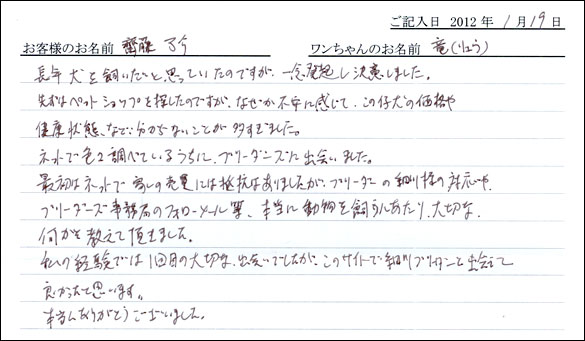 ご記入日 2012年 1月19日
お客様のお名前 齋藤 ワンちゃんのお名前 竜(りゅう)
長年犬を飼いたいと思っていたのですが、一念発起し決意しました。
先ずはペットショップを探したのですが、なぜか不安に感じて、この仔犬の価格や
健康状態、など分からないことが多すぎました。
ネットで色々調べているうちに、ブリーダーズに出会いました。
最初はネットで の売買には抵抗はありましたが、ブリーダーの 様の対応や、
ブリーダーズ事務局のフォローメール等、本当に動物を飼うにあたり、大切な
何かを教えて頂きました。
私の経験では1回目の大切な出会いでしたが、このサイトで ブリーダーと出会えて
良かったと思います。
本当にありがとうございました。